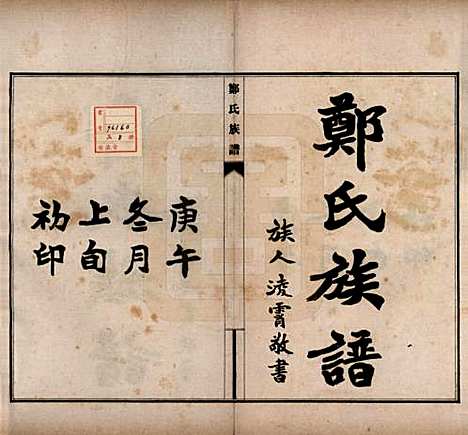 鄭氏族譜
族人淩霄敬書
鄭氏族譜
庚午
冬月
上旬
初印